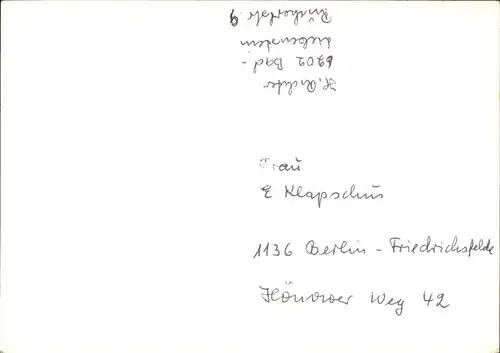 H. Richter
6202 Bad-
Liebenstein
Rückertstr. 9
Frau
E Klapschus
1136 Berlin - Friedrichsfelde
Hönower Weg 42